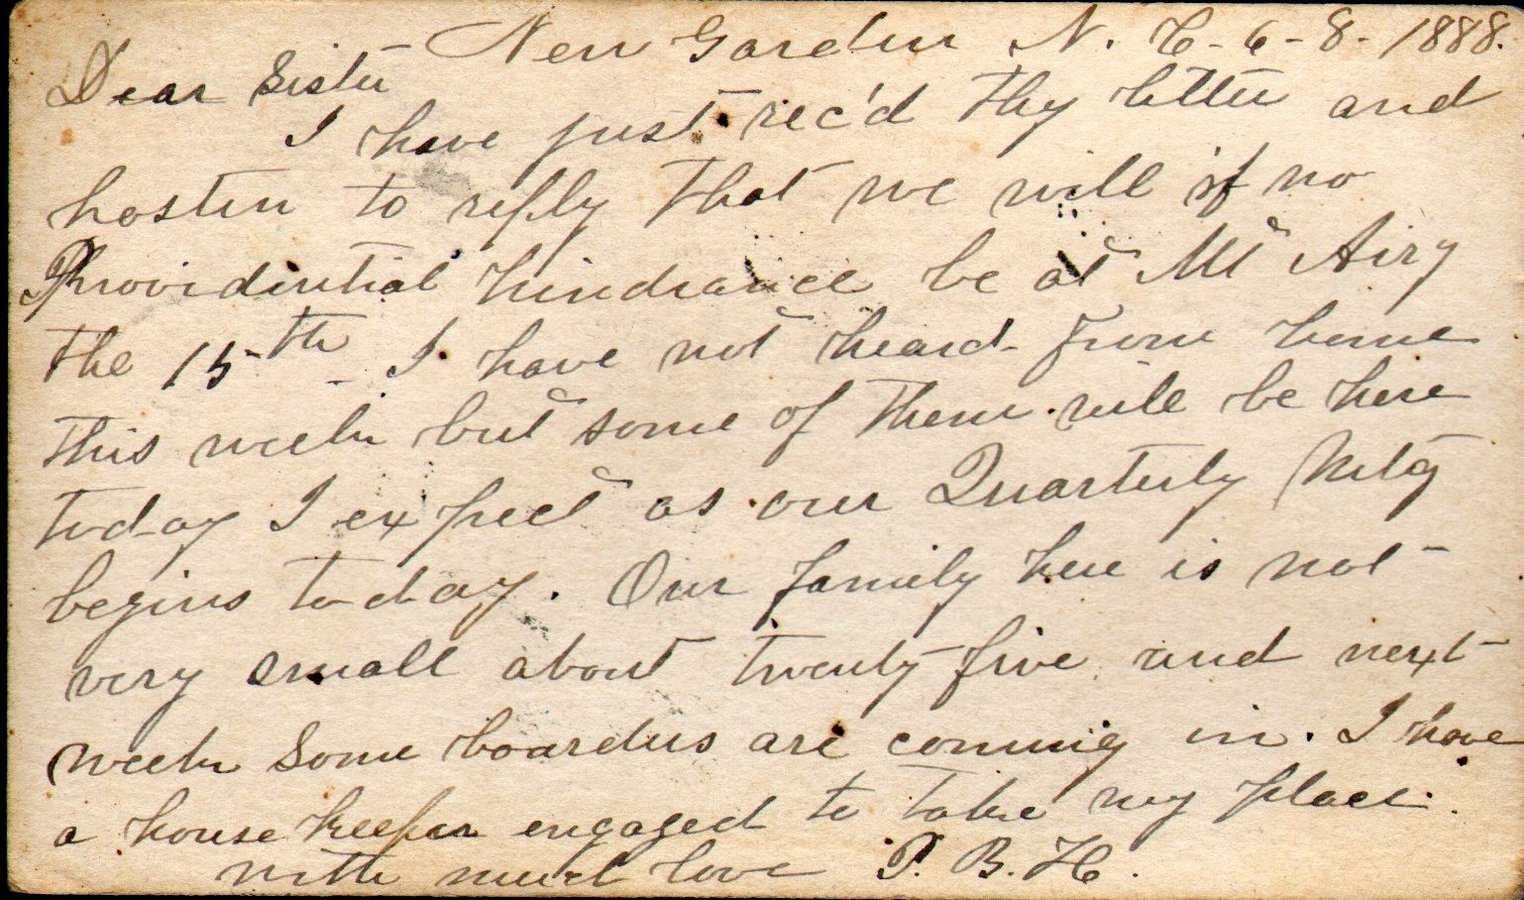 New Garden N. C- 6-8-1888.
Dear Sister
I have just rec'd thy letter and
hasten to reply that we will if no
Providential hindrance be at Mt Airy
the 15th - I have not heard from home
this week but some of them will be here
today I expect as our Quarterly Mtg
begins today. Our family here is not
very small about twenty five and next
week some boarders are coming in. I have
a house keeper engaged to take my place.
with much love P. B. H.